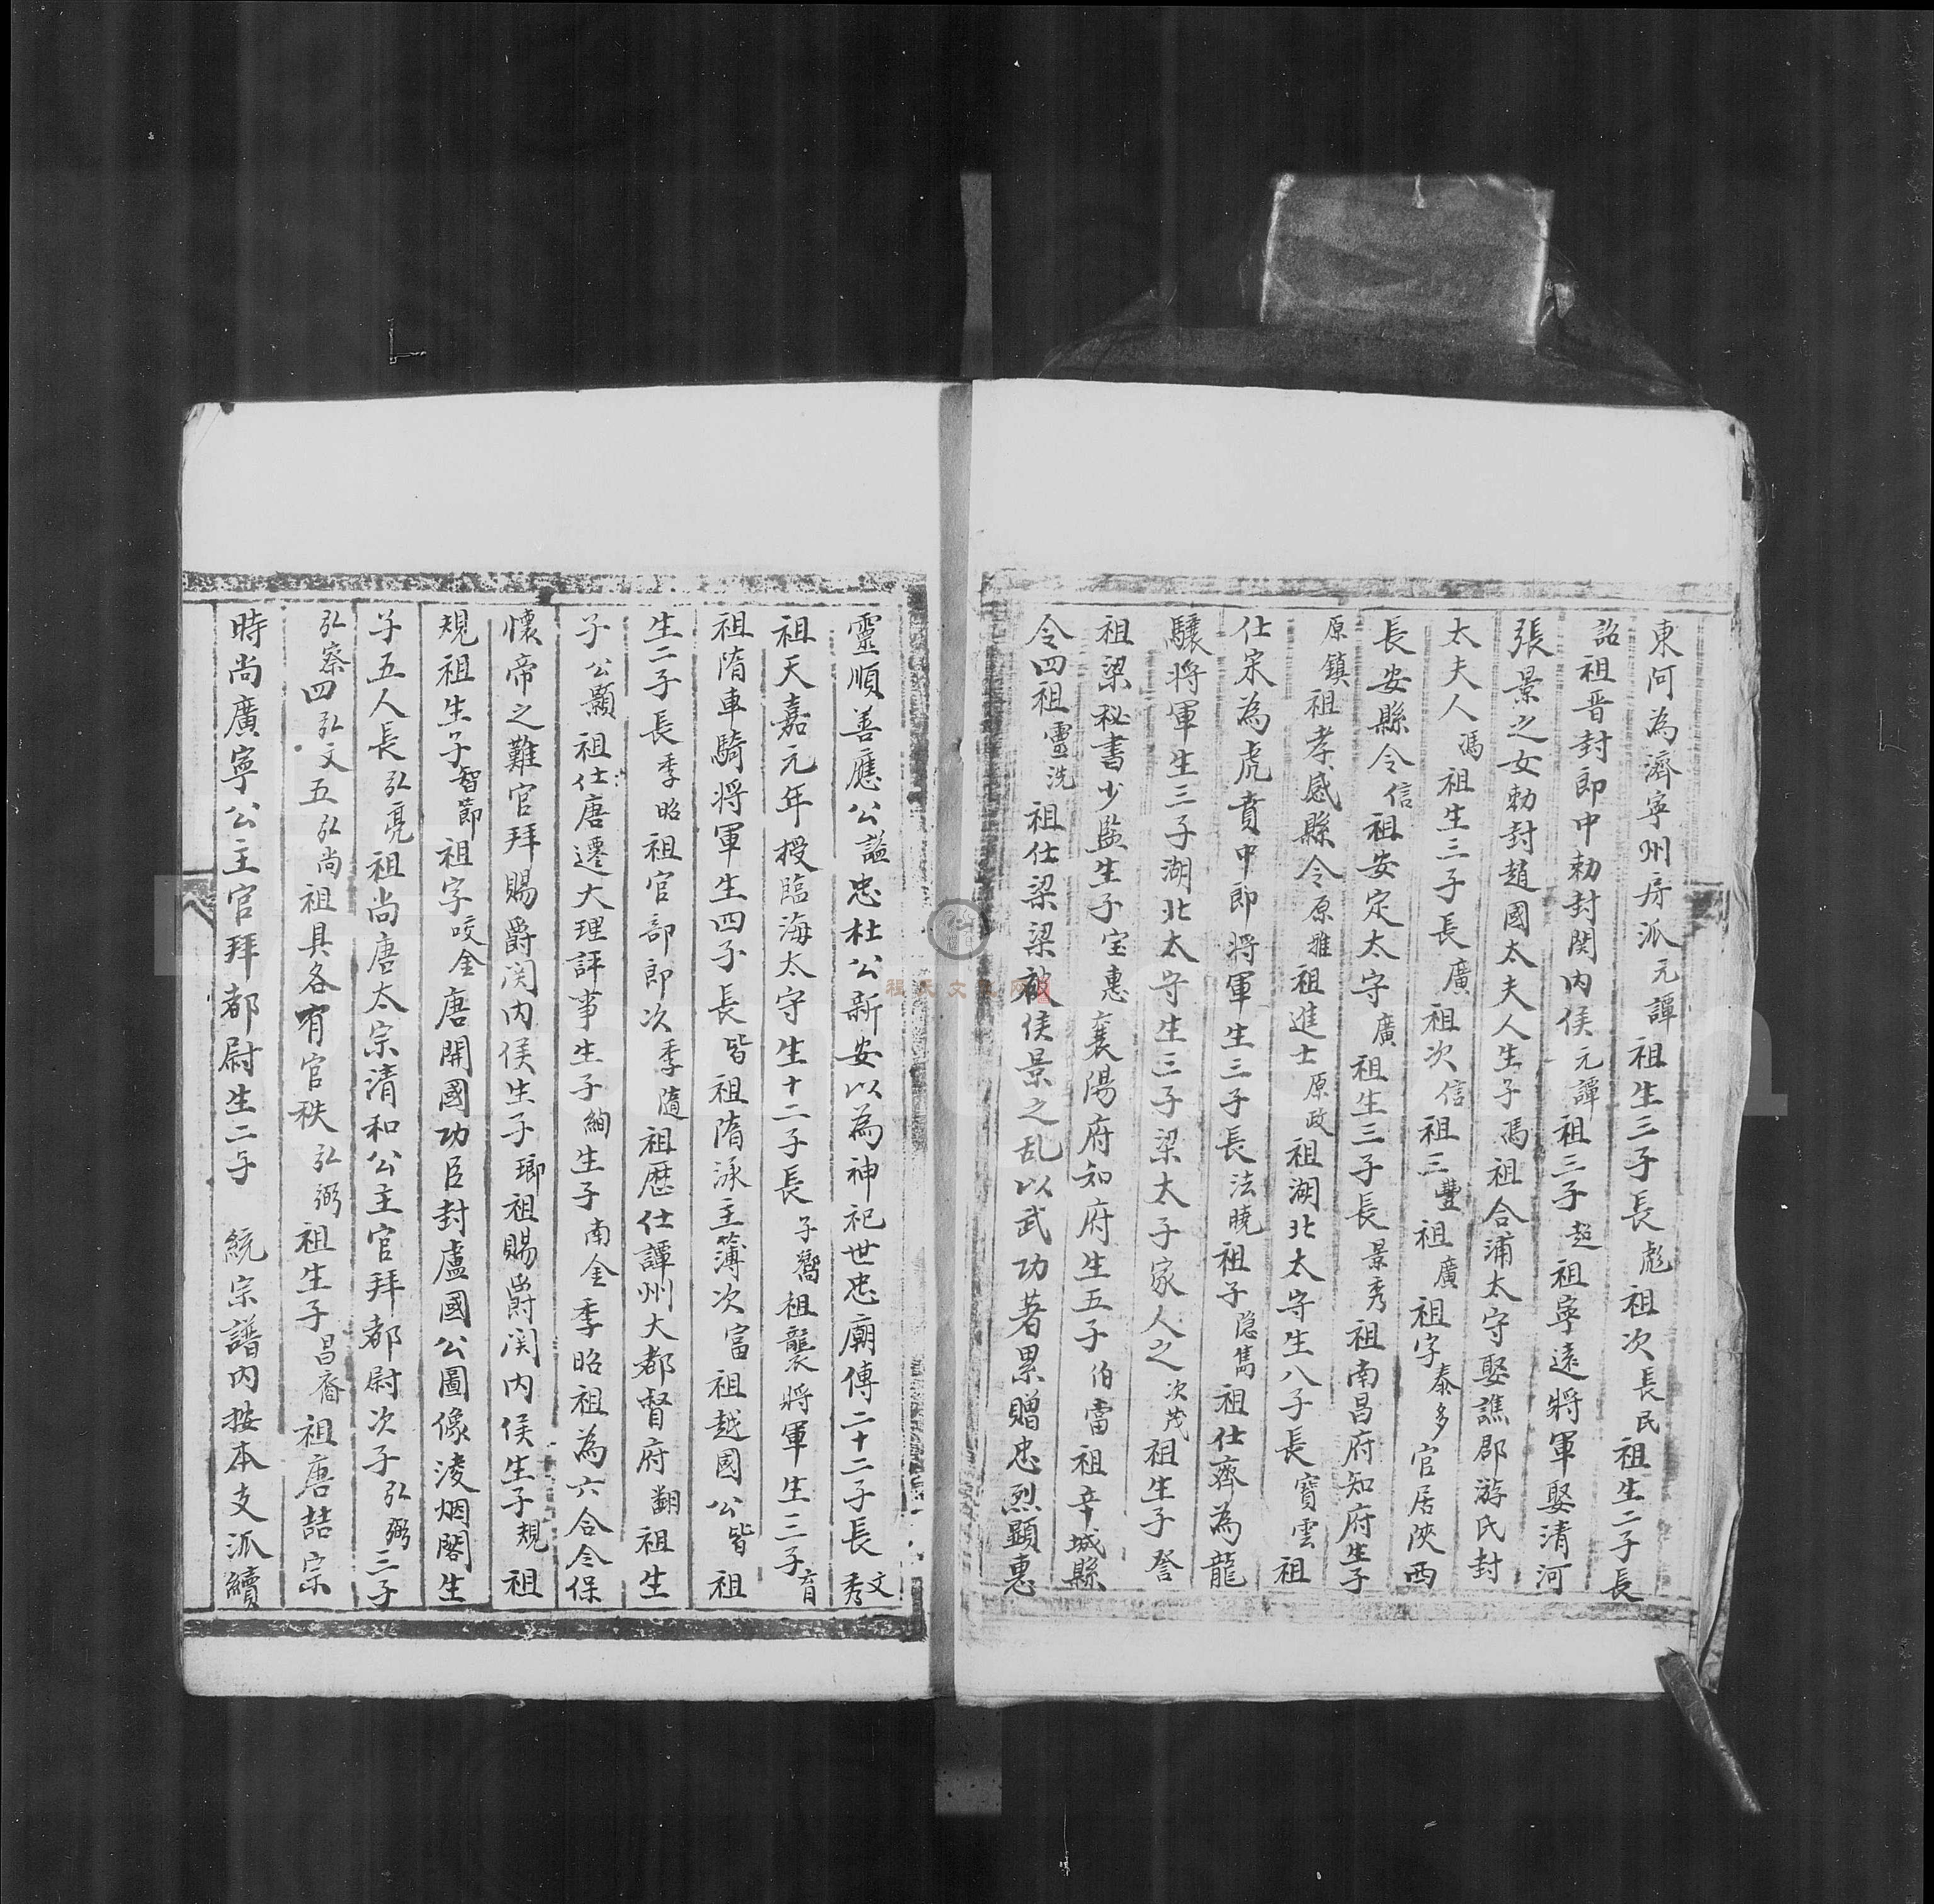 東阿為濟寧州房派元譚祖生三子長彪祖次長民祖生二子長
詔祖晋封郎中勅封関内侯元譚祖三子超祖寧遠將軍娶清河
張景之女勅封趙國太夫人生子馮祖合浦太守娶譙郡游氏封
太夫人馮祖生三子長廣祖次信祖三豐祖廣祖字泰多官居陝西
長安縣令信祖安定太守廣祖生三子長景秀祖南昌府知府生子
原鎮祖孝感縣令原推祖進士原政祖湖北太守生八子長寶雲祖
仕宋為虎賁中郎將軍生三子長法曉祖子隐雋祖仕齊為龍
驤將軍生三子湖北太守生三子梁太子家人之次茂祖生子詧
祖梁秘書少監生子宝惠襄陽府知府生五子伯當祖辛城縣
令四祖靈洗祖仕梁梁被侯景之乱以武功著累贈忠烈顯惠
靈順善應公謚忠杜公新安以為神祀世忠廟傳二十二子長文秀
祖天嘉元年授臨海太守生十二子長子嚮祖襲將軍生三子育
祖隋車騎將軍生四子長皆祖隋泳主簿次富祖越國公皆祖
生二子長季昭祖官部郎次季隨祖歷仕譚州大都督府翻祖生
子公顯祖仕唐遷大理評事生子絢生子南金季昭祖為六合令保
懷帝之難官拜賜爵関内侯生子瑯祖賜爵関内侯生子規祖
規祖生子智節祖字咬金唐開國功臣封盧國公圖像凌烟閣生
子五人長弘亮祖尚唐太宗清和公主官拜都尉次子弘弼三子
弘察四弘文五弘尚祖具各有官秩弘弼祖生子昌裔祖唐喆宗
時尚廣寧公主官拜都尉生二子 統宗譜内按本支派續
程氏文化网